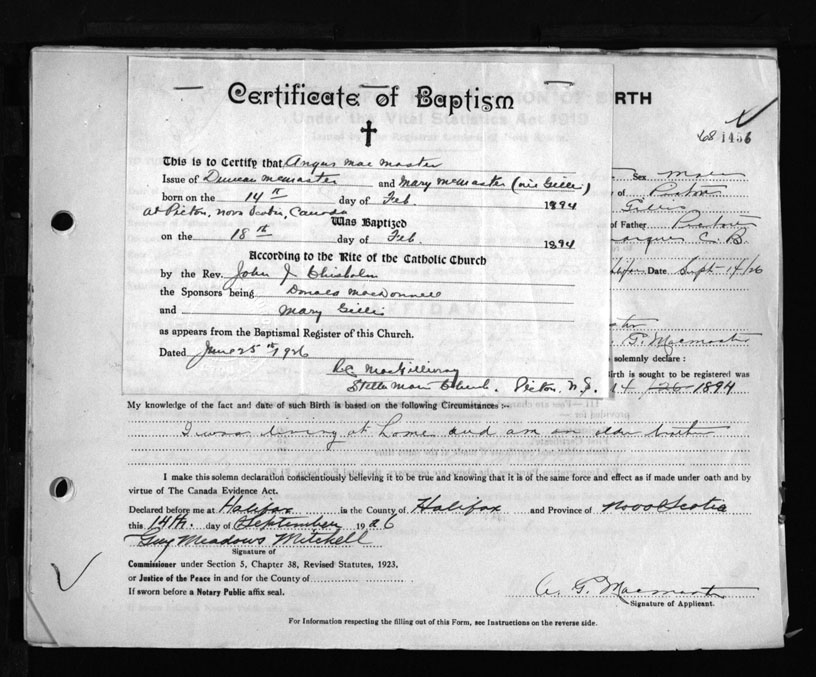 Certificate of Baptism
RTH
1456
This is to Certify that Angus Mac Master
Issue of Duncan McMaster and Mary McMaster (née Gillis)
born on the 14th day of Feb. 1894
at Pictou, Nova Scotia, Canada
Was Baptized
on the 18th day of Feb. 1894
According to the Rite of the Catholic Church
by the Rev. John J Chisholm
the Sponsors being Donald MacDonnell
and Mary Gillis
as appears from the Baptismal Register of this Church.
Dated June 25th 1926
MacGillivray
Stella Maris Church. Pictou, N.S.
Sex Male
of Pictou
Gillis
of Father
C. B.
Date Sept. 14/26
Macmaster
solemnly declare :
Birth is sought to be registered was
14 1894
My knowledge of the fact and date of such Birth is based on the following Circumstances :-
I was living at home and am an older brother
I make this solemn declaration conscientiously believing it to be true and knowing that it is of the same force and effect as if made under oath and by
virtue of The Canada Evidence Act.
Declared before me at Halifax in the County of Halifax and Province of Nova Scotia
this 14th. day of September 1926
Guy Meadows Mitchell
Signature of
Commissioner under Section 5, Chapter 38, Revised Statutes, 1923.
or Justice of the Peace in and for the County of
If sworn before a Notary Public affix seal.
Macmaster
Signature of Applicant.
For Information respecting the filling out of this Form, see Instructions on the reverse side.